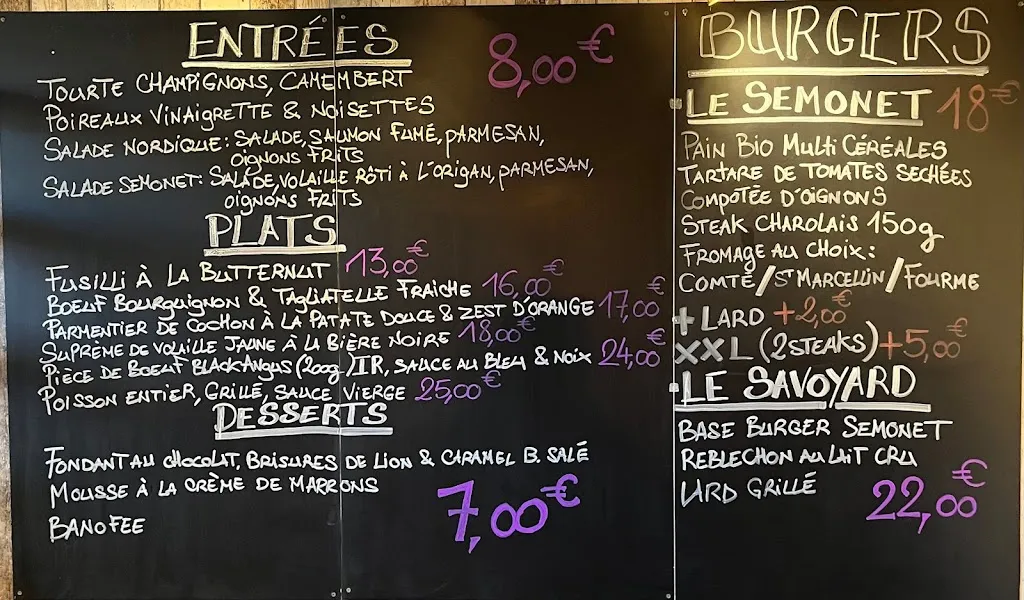 ENTRÉES 8,00€
TOURTE CHAMPIGNONS, CAMEMBERT
POIREAUX VINAIGRETTE & NOISETTES
SALADE NORDIQUE: SALADE, SAUMON FUMÉ, PARMESAN,
OIGNONS FRITS
SALADE SEMONET: SALADE, VOLAILLE RÔTI À L'ORIGAN, PARMESAN,
OIGNONS FRITS
PLATS
FUSILLI À LA BUTTERNUT 13,00€
BOEUF BOURGUIGNON & TAGLIATELLE FRAICHE 16,00€
PARMENTIER DE COCHON À LA PATATE DOUCE & ZEST D'ORANGE 17,00€
SUPRÈME DE VOLAILLE JAUNE À LA BIÈRE NOIRE 18,00€
PIÈCE DE BOEUF BLACK ANGUS (200g) IR, SAUCE AU BLEU & NOIX 24,00€
POISSON ENTIER, GRILLÉ, SAUCE VIERGE 25,00€
DESSERTS
FONDANT AU CHOCOLAT, BRISURES DE LION & CARAMEL B. SALÉ
MOUSSE À LA CRÈME DE MARRONS
BANOFEE
7,00€
BURGERS
LE SEMONET 18€
PAIN BIO MULTI CÉRÉALES
TARTARE DE TOMATES SECHÉES
COMPOTÉE D'OIGNONS
STEAK CHAROLAIS 150g
FROMAGE AU CHOIX:
COMTÉ/ST MARCELLIN/FOURME
+ LARD +2,00€
XXL (2 STEAKS) +5,00€
LE SAVOYARD
BASE BURGER SEMONET
REBLECHON AU LAIT CRU
LARD GRILLÉ
22,00€